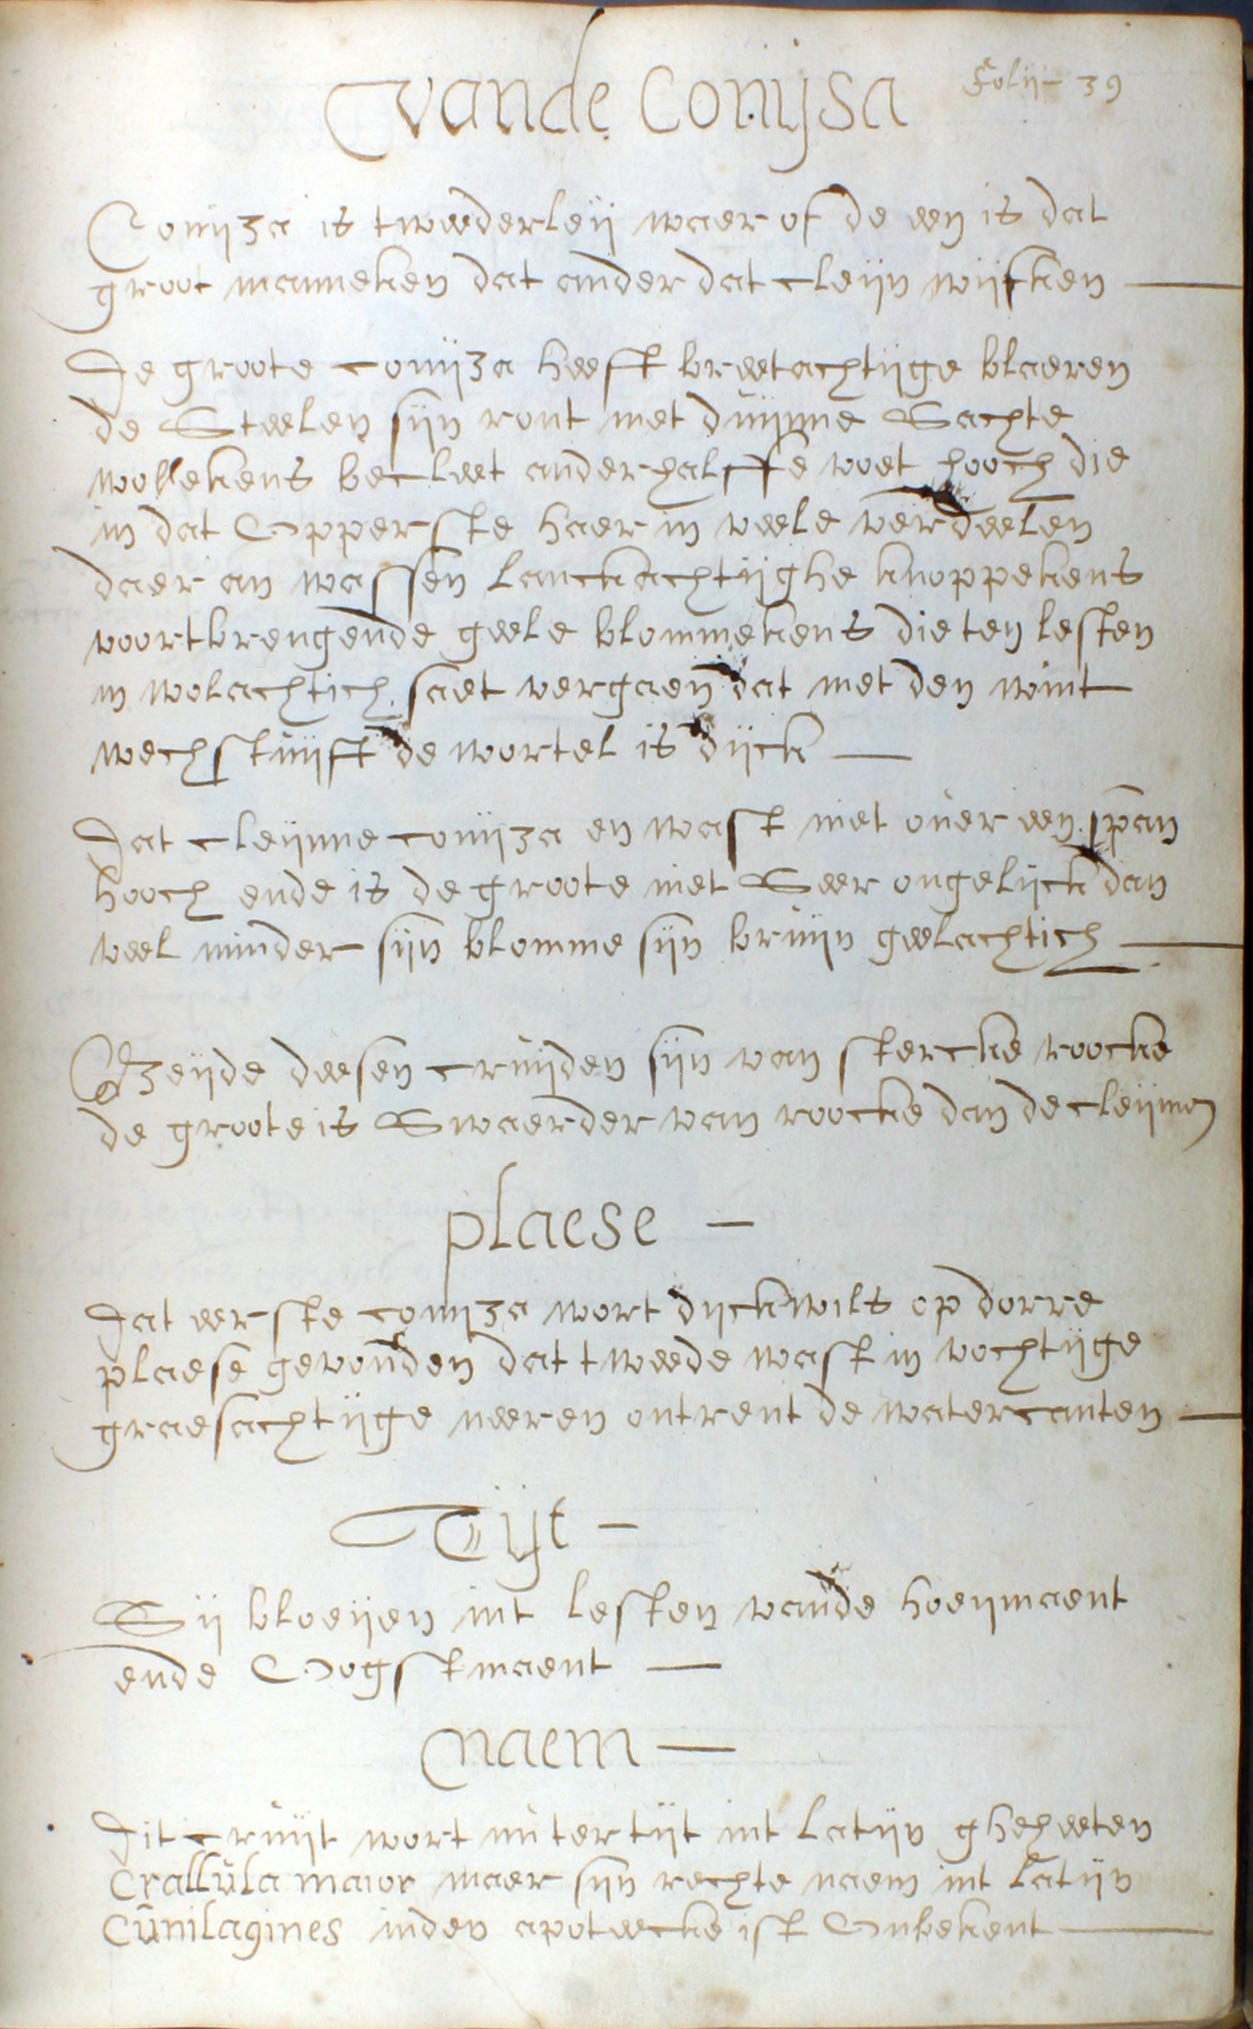 Folij 39
Vande Conijsa
Conijza is tweederleij waer of de een is dat
groot manneken dat ander dat cleijn wijfken
De groote conijza heeft breetachtijge blaeren
de Steelen sijn ront met duijnne Sachte
wollekens becleet anderhalffe voet hooch die
in dat Opperste haer in veele verdeelen
daer an wassen lanckachtijghe knoppekens
voortbrengende geele blommekens die ten lesten
in wolachtich saet vergaen dat met den wint
wech stuijft de wortel is dijck
Dat cleijnne conijza en wast niet over een span
hooch ende is de groote niet Seer ongelijck dan
veel minder sijn blomme sijn bruijn geelachtich
Bzeijde deesen cruijden sijn van stercke roocke
de groote is Swaerder van roocke dan de cleijnen
plaese
Dat eerste conijza wort dijckwils op dorre
plaese gevonden dat tweede wast in vochtijge
graesachtijge neeren ontrent de watercanten
Tijt
Sij bloeijen int lesten vande hoeijmaent
ende Oogstmaent
Naem
Dit cruijt wort nu ter tijt int latijn gheheeten
Crallula maior maer sijn rechte naem int latijn
Cunilagines inden apoteecke ist Onbekent